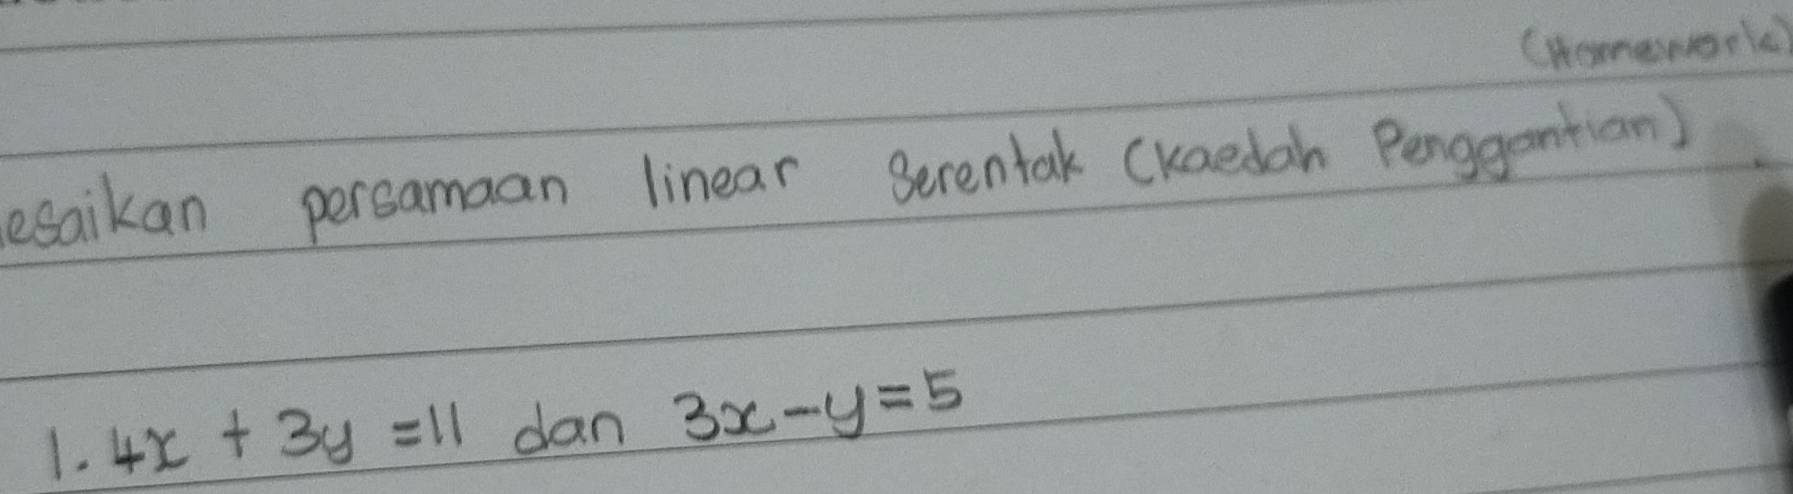 (Homework)
lesaikan persamaan linear serentak (kaedah Penggantian)
1. 4x + 3y = 11 dan 3x - y = 5